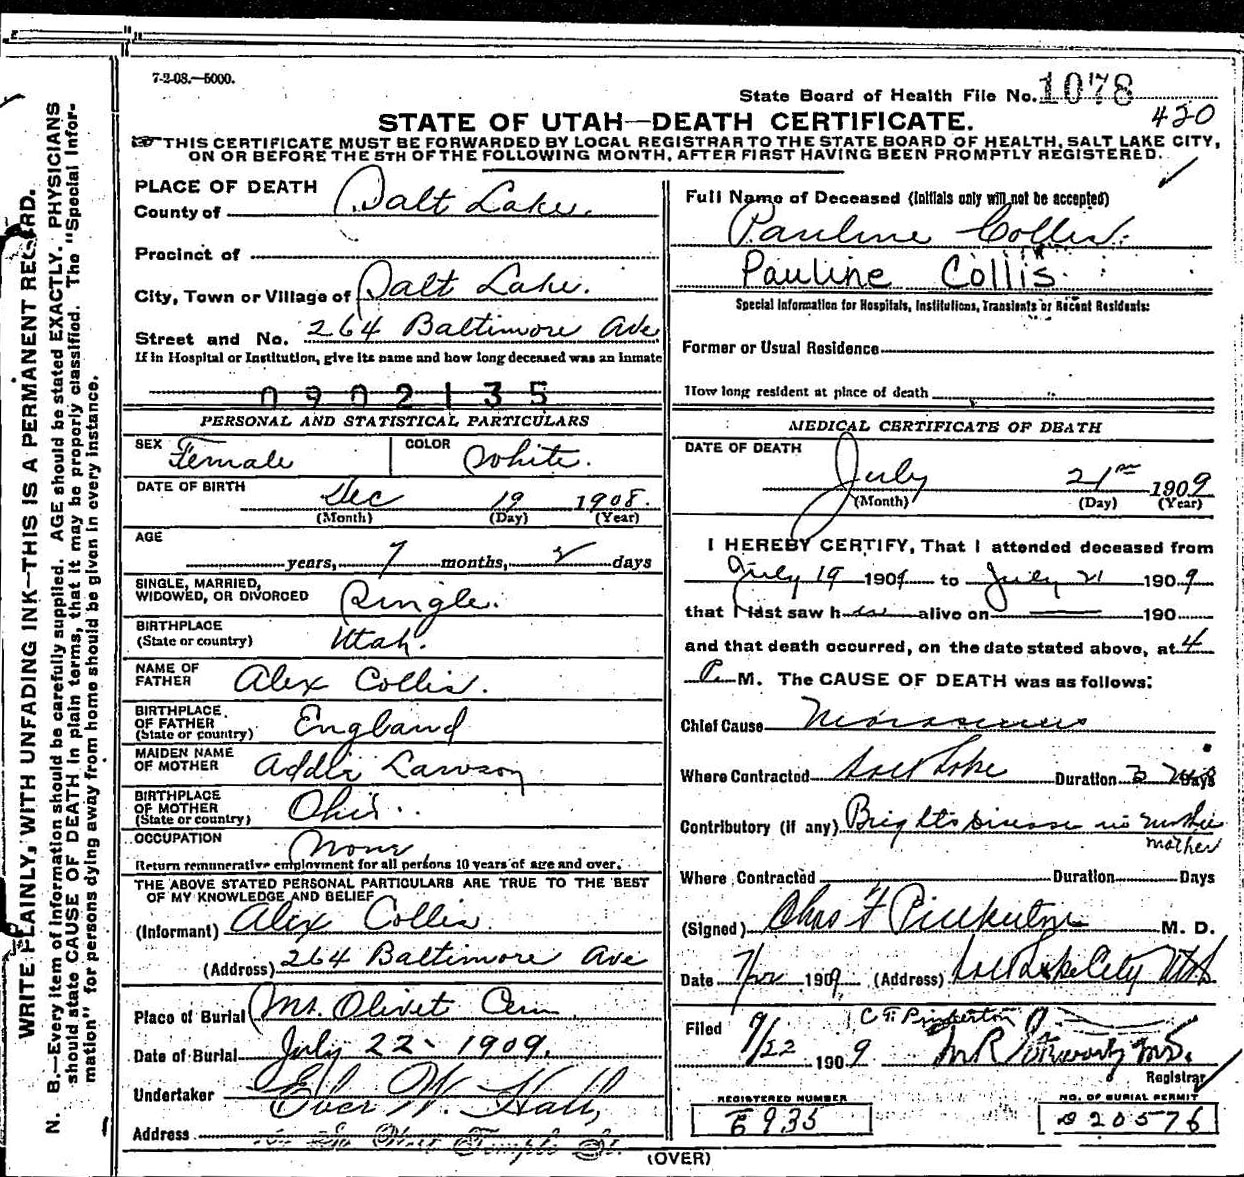 7-2-08.—5000.
State Board of Health File No. 1078
420
STATE OF UTAH—DEATH CERTIFICATE.
THIS CERTIFICATE MUST BE FORWARDED BY LOCAL REGISTRAR TO THE STATE BOARD OF HEALTH, SALT LAKE CITY,
ON OR BEFORE THE 5TH OF THE FOLLOWING MONTH, AFTER FIRST HAVING BEEN PROMPTLY REGISTERED.
WRITE PLAINLY, WITH UNFADING INK—THIS IS A PERMANENT RECORD.
N. B.—Every item of information should be carefully supplied. AGE should be stated EXACTLY. PHYSICIANS
should state CAUSE OF DEATH in plain terms, that it may be properly classified. The "Special Infor-
mation" for persons dying away from home should be given in every instance.
PLACE OF DEATH
County of Salt Lake.
Precinct of
City, Town or Village of Salt Lake.
Street and No. 264 Baltimore Ave
If in Hospital or Institution, give its name and how long deceased was an inmate
0902135
PERSONAL AND STATISTICAL PARTICULARS
SEX Female COLOR White.
DATE OF BIRTH Dec 19 1908.
(Month) (Day) (Year)
AGE
years, 7 months, 2 days
SINGLE, MARRIED,
WIDOWED, OR DIVORCED Single.
BIRTHPLACE
(State or country) Utah.
NAME OF
FATHER Alex Collis.
BIRTHPLACE
OF FATHER
(State or country) England
MAIDEN NAME
OF MOTHER Addie Lawson
BIRTHPLACE
OF MOTHER
(State or country) Ohio.
OCCUPATION None
Return remunerative employment for all persons 10 years of age and over.
THE ABOVE STATED PERSONAL PARTICULARS ARE TRUE TO THE BEST
OF MY KNOWLEDGE AND BELIEF
(Informant) Alex Collis.
(Address) 264 Baltimore Ave
Place of Burial Mt. Olivet Cem
Date of Burial July 22 - 1909.
Undertaker Eber W. Hall,
Address Temple St.
Full Name of Deceased (Initials only will not be accepted)
Pauline Collis.
Pauline Collis
Special Information for Hospitals, Institutions, Transients or Recent Residents:
Former or Usual Residence
How long resident at place of death
MEDICAL CERTIFICATE OF DEATH
DATE OF DEATH
July 21 1909
(Month) (Day) (Year)
I HEREBY CERTIFY, That I attended deceased from
July 19 1909 to July 21 1909
that I last saw h alive on 190
and that death occurred, on the date stated above, at 4
P. M. The CAUSE OF DEATH was as follows:
Chief Cause Marasmus
Where Contracted Salt Lake Duration Days
Contributory (if any) Brights Disease in mother
mother
Where Contracted Duration Days
(Signed) Chas F Pinkerton M. D.
Date 7/22 1909 (Address) Salt Lake City Utah
C F Pinkerton
Filed 7/22 1909
Registrar
REGISTERED NUMBER
E935
NO. OF BURIAL PERMIT
D20576
(OVER)